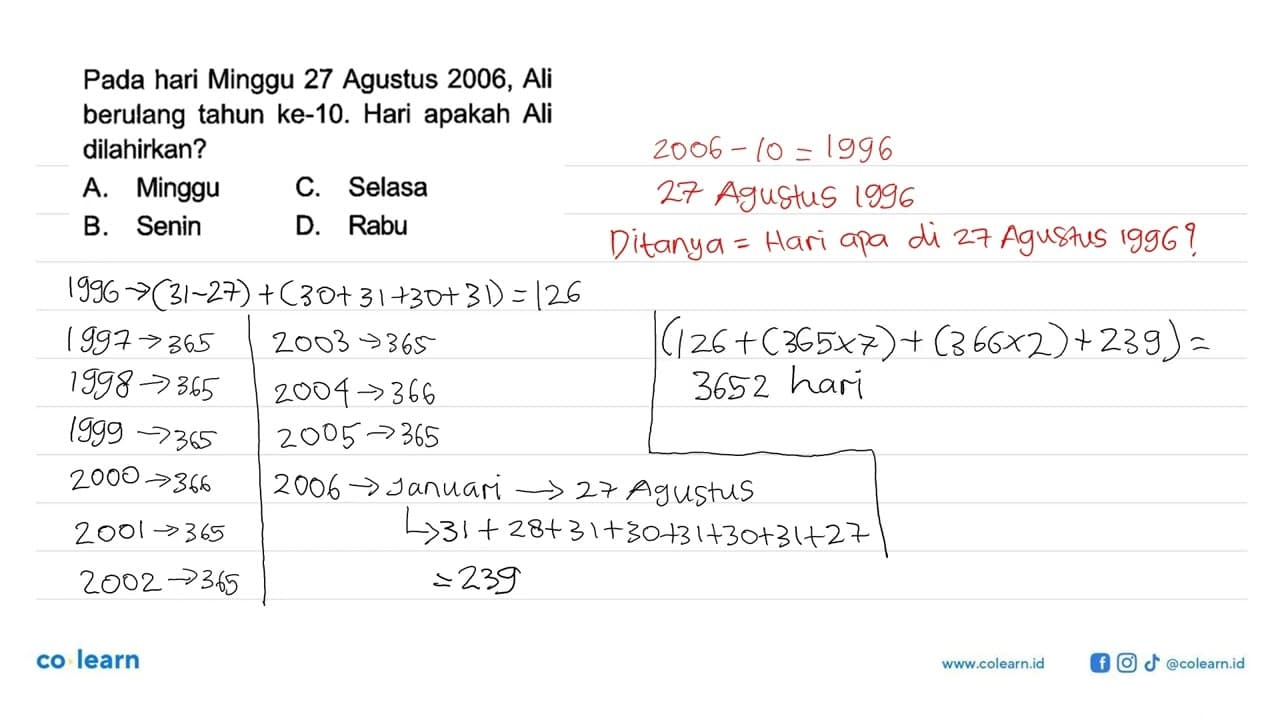 Pada hari Minggu 27 Agustus 2006, Ali
berulang tahun ke-10. Hari apakah Ali
dilahirkan?
A. Minggu C. Selasa
B. Senin D. Rabu
2006 - 10 = 1996
27 Agustus 1996
Ditanya = Hari apa di 27 Agustus 1996?
1996 → (31-27) + (30+31+30+31) = 126
1997 → 365
1998 → 365
1999 → 365
2000 → 366
2001 → 365
2002 → 365
2003 → 365
2004 → 366
2005 → 365
2006 → Januari → 27 Agustus
↳ 31 + 28 + 31 + 30 + 31 + 30 + 31 + 27
= 239
(126 + (365x7) + (366x2) + 239) =
3652 hari
co learn
www.colearn.id
@colearn.id